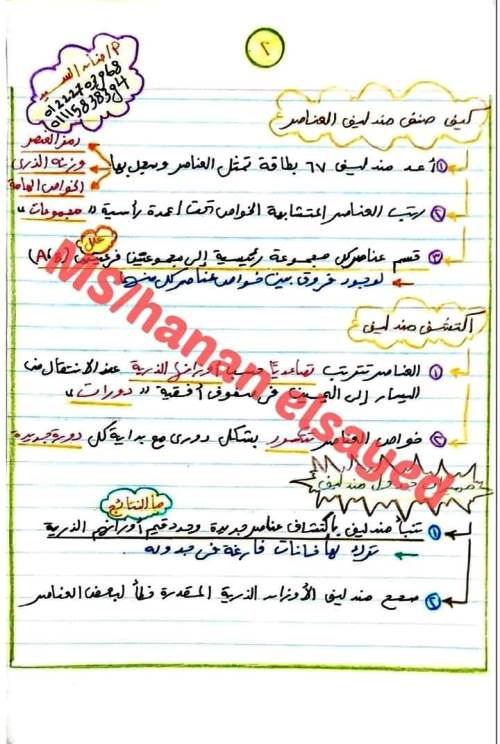 ٢
م/حنان السيد
01222702968
01115838394
كيف صنف مندليف العناصر
① أعد مندليف ٦٧ بطاقة تمثل العناصر وسجل بها
رمز العنصر
وزنه الذرى
الخواص العامة
② رتب العناصر المتشابهة الخواص تحت أعمدة رأسية « مجموعات »
علل
③ قسم عناصر كل مجموعة رئيسية إلى مجموعتين فرعيتين (A,B)
لوجود فروق بين خواص عناصر كل منها
اكتشف مندليف
① العناصر تترتب تصاعدياً حسب أوزانها الذرية عند الانتقال من
اليسار إلى اليمين فى صفوف أفقية « دورات »
② خواص العناصر تتكرر بشكل دورى مع بداية كل دورة جديدة
جدول مندليف
ما النتائج
① تنبأ مندليف باكتشاف عناصر جديدة وحدد قيم أوزانهم الذرية
ترك لها خانات فارغة فى جدوله
② صحح مندليف الأوزان الذرية المقدرة خطأ لبعض العناصر
Ms/hanan elsayed